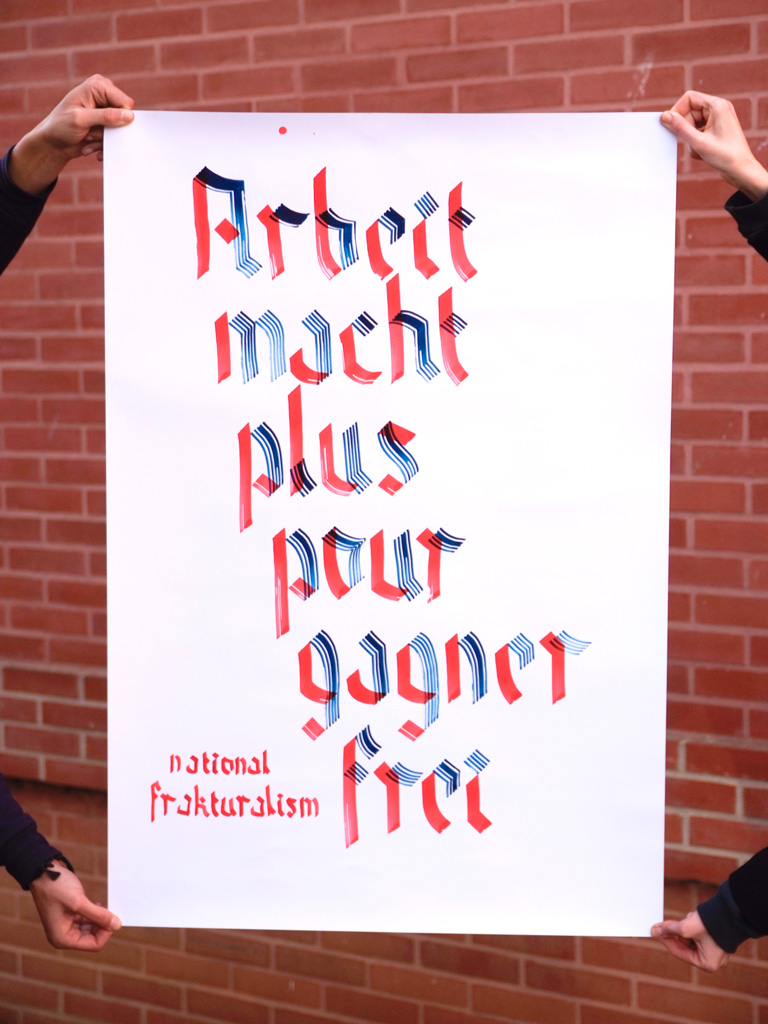 Arbeit
macht
plus
pour
gagner
frei
national
frakturalism